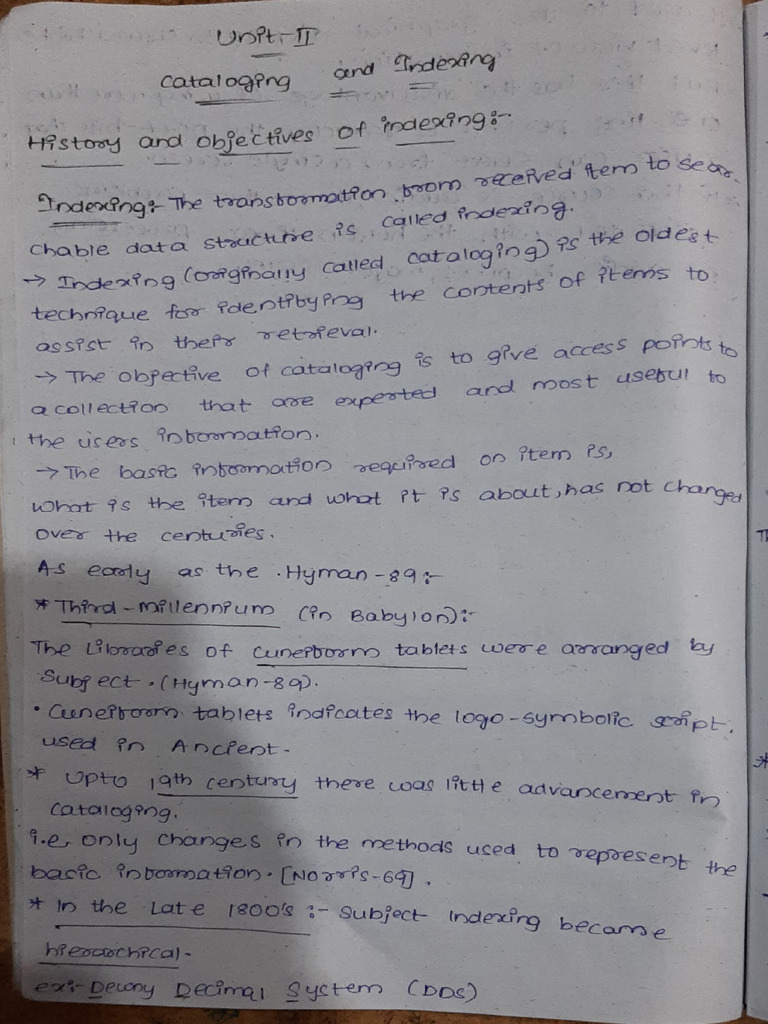 Unit-II
Cataloging and Indexing
History and objectives of indexing:-
Indexing:- The transformation from received item to sear-
chable data structure is called indexing.
→ Indexing (originally called cataloging) is the oldest
technique for identifying the contents of items to
assist in their retrieval.
→ The objective of cataloging is to give access points to
a collection that are experted and most useful to
the users information.
→ The basic information required on item is,
what is the item and what it is about, has not changed
over the centuries.
As early as the . Hyman-89:-
* Third-millennium (in Babylon):-
The Libraries of cuneiform tablets were arranged by
Subject. (Hyman-89).
• Cuneiform tablets indicates the logo-symbolic script.
used in Ancient.
* Upto 19th century there was little advancement in
cataloging.
i.e, only changes in the methods used to represent the
basic information. [Norris-69].
* In the Late 1800's :- Subject Indexing became
hierarchical.
ex:- Dewny Decimal System (DDS)